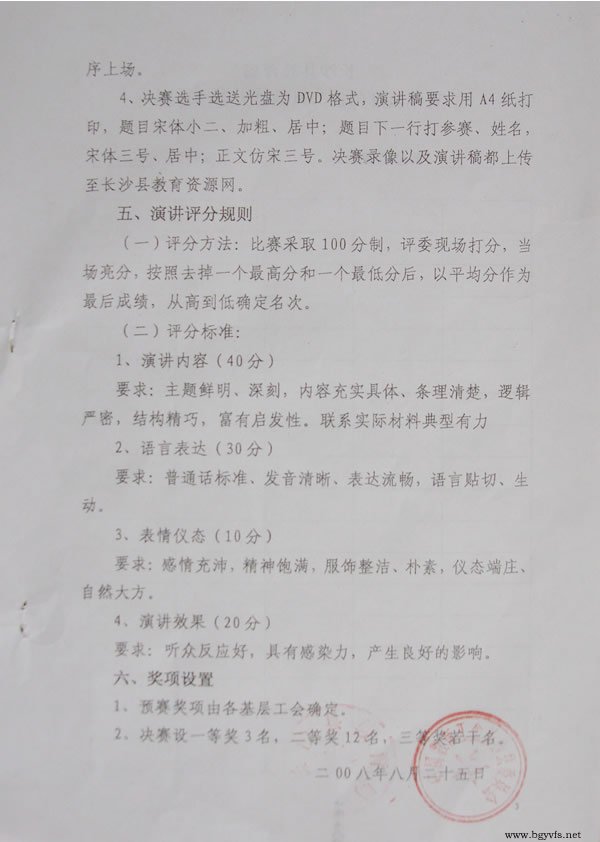 序上场。
4、决赛选手选送光盘为 DVD 格式，演讲稿要求用 A4 纸打
印，题目宋体小二、加粗、居中；题目下一行打参赛、姓名，
宋体三号、居中；正文仿宋三号。决赛录像以及演讲稿都上传
至长沙县教育资源网。
五、演讲评分规则
（一）评分方法：比赛采取 100 分制，评委现场打分，当
场亮分，按照去掉一个最高分和一个最低分后，以平均分作为
最后成绩，从高到低确定名次。
（二）评分标准：
1、演讲内容（40 分）
要求：主题鲜明、深刻，内容充实具体、条理清楚，逻辑
严密，结构精巧，富有启发性。联系实际材料典型有力
2、语言表达（30 分）
要求：普通话标准、发音清晰、表达流畅，语言贴切、生
动。
3、表情仪态（10 分）
要求：感情充沛，精神饱满，服饰整洁、朴素，仪态端庄、
自然大方。
4、演讲效果（20 分）
要求：听众反应好，具有感染力，产生良好的影响。
六、奖项设置
1、预赛奖项由各基层工会确定。
2、决赛设一等奖 3 名，二等奖 12 名，三等奖若干名。
二 00 八年八月二十五日
3
www.bgyvfs.net